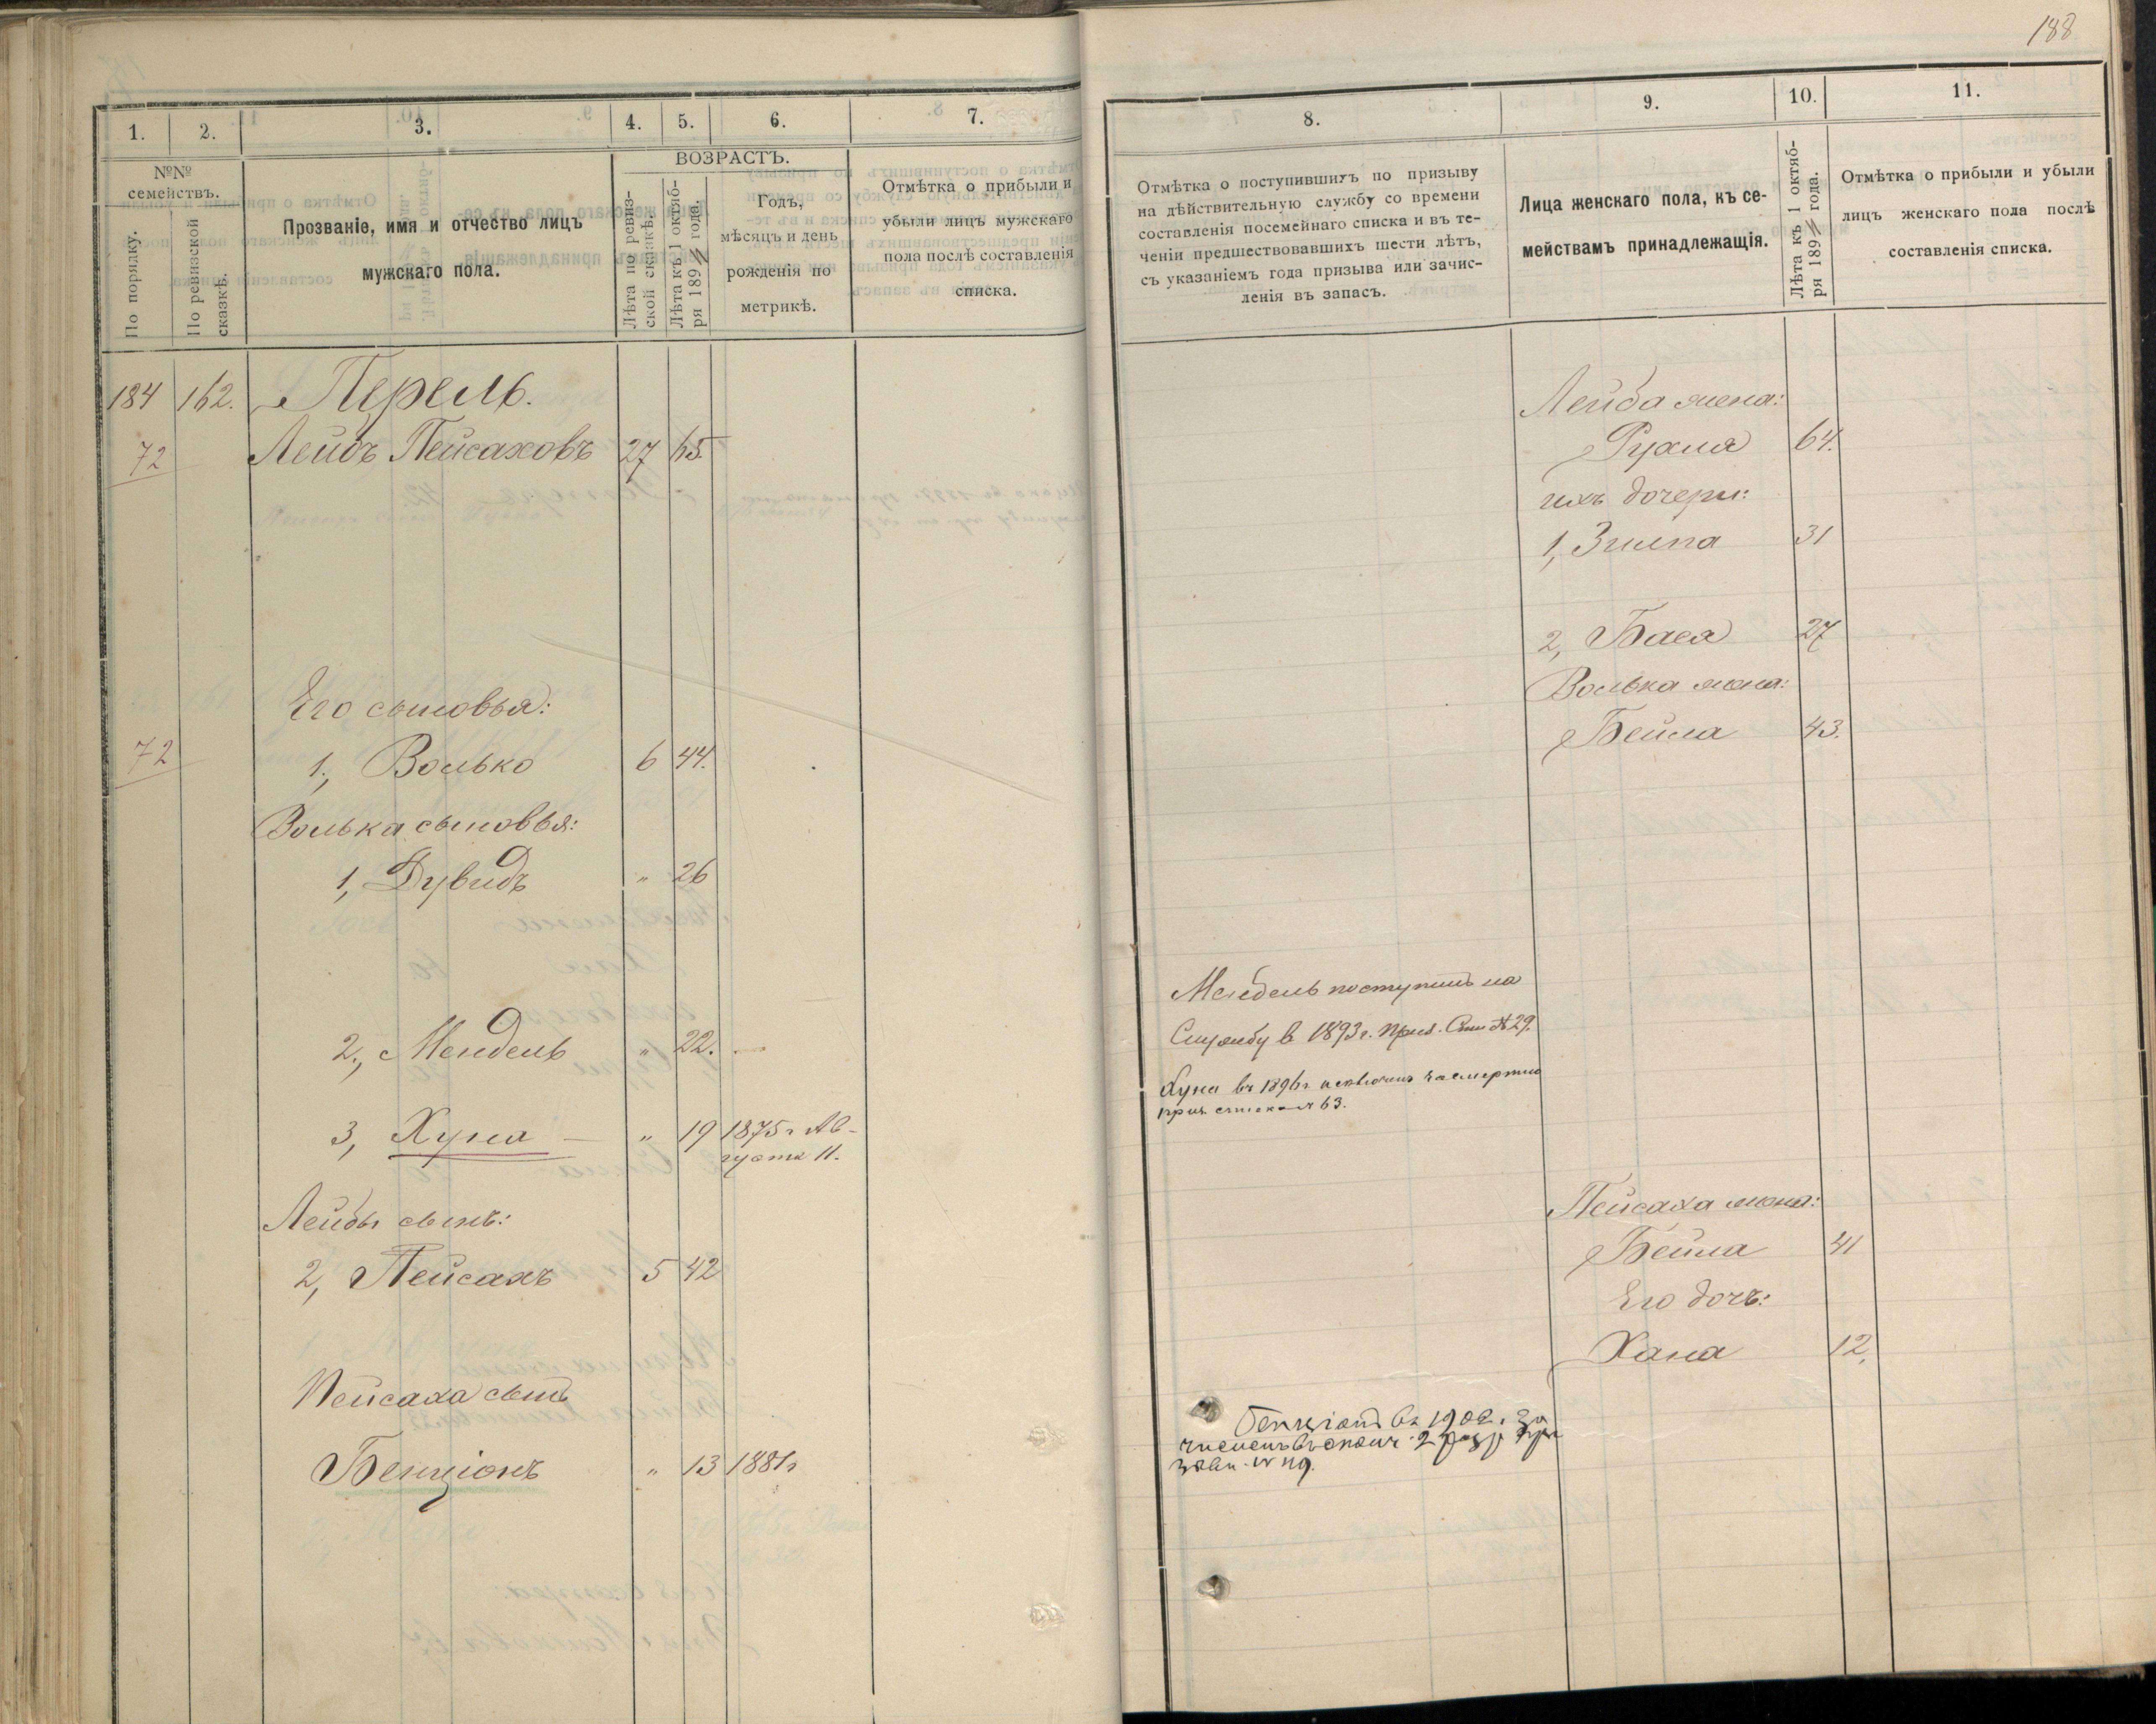 188
1.
2.
3.
4.
5.
6.
7.
№№ семействъ.
По порядку.
По ревизской сказкѣ.
Прозваніе, имя и отчество лицъ
мужскаго пола.
ВОЗРАСТЪ.
Лѣта по ревиз-
ской сказкѣ.
Лѣта къ 1 октяб-
ря 189 года.
Годъ,
мѣсяцъ и день
рожденія по
метрикѣ.
Отмѣтка о прибыли и
убыли лицъ мужскаго
пола послѣ составленія
списка.
184 162. Перель.
72 Лейбъ Пейсаховъ 27 65
Его сыновья:
72 1, Волько 6 44.
Волька сыновья:
1, Дувидъ " 26
2, Мендель " 22.
3, Хуна — " 19 1875 г Ав-
густа 11.
Лейбы сынъ:
2, Пейсахъ 5 42
Пейсаха сынъ
Бенціонъ " 13 1881г
8.
9.
10.
11.
Отмѣтка о поступившихъ по призыву
на дѣйствительную службу со времени
составленія посемейнаго списка и въ те-
ченіи предшествовавшихъ шести лѣтъ,
съ указаніемъ года призыва или зачис-
ленія въ запасъ.
Лица женскаго пола, къ се-
мействамъ принадлежащія.
Лѣта къ 1 октяб-
ря 189 года.
Отмѣтка о прибыли и убыли
лицъ женскаго пола послѣ
составленія списка.
Лейба жена:
Рухля 64.
ихъ дочери:
1, Зилпа 31
2, Бася 27
Волька жена:
Бейла 43.
Мендель поступилъ на
Службу в 1893 г. Приз. Спи № 29.
Хуна въ 1896 г исключенъ за смертію
приз. списка № 63.
Пейсаха жена:
Бейла 41
Его дочь:
Хана 12,
Бенціонъ въ 1902. За
численъ въ ополч. 2 разр. при
119.